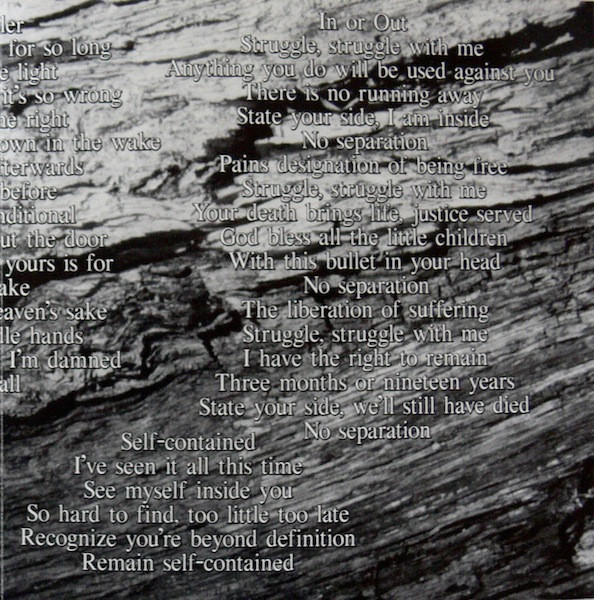 ler
for so long
e light
it's so wrong
he right
own in the wake
fterwards
before
nditional
ut the door
yours is for
ake
eaven's sake
dle hands
I'm damned
all
In or Out
Struggle, struggle with me
Anything you do will be used against you
There is no running away
State your side, I am inside
No separation
Pains designation of being free
Struggle, struggle with me
Your death brings life, justice served
God bless all the little children
With this bullet in your head
No separation
The liberation of suffering
Struggle, struggle with me
I have the right to remain
Three months or nineteen years
State your side, we'll still have died
No separation
Self-contained
I've seen it all this time
See myself inside you
So hard to find, too little too late
Recognize you're beyond definition
Remain self-contained